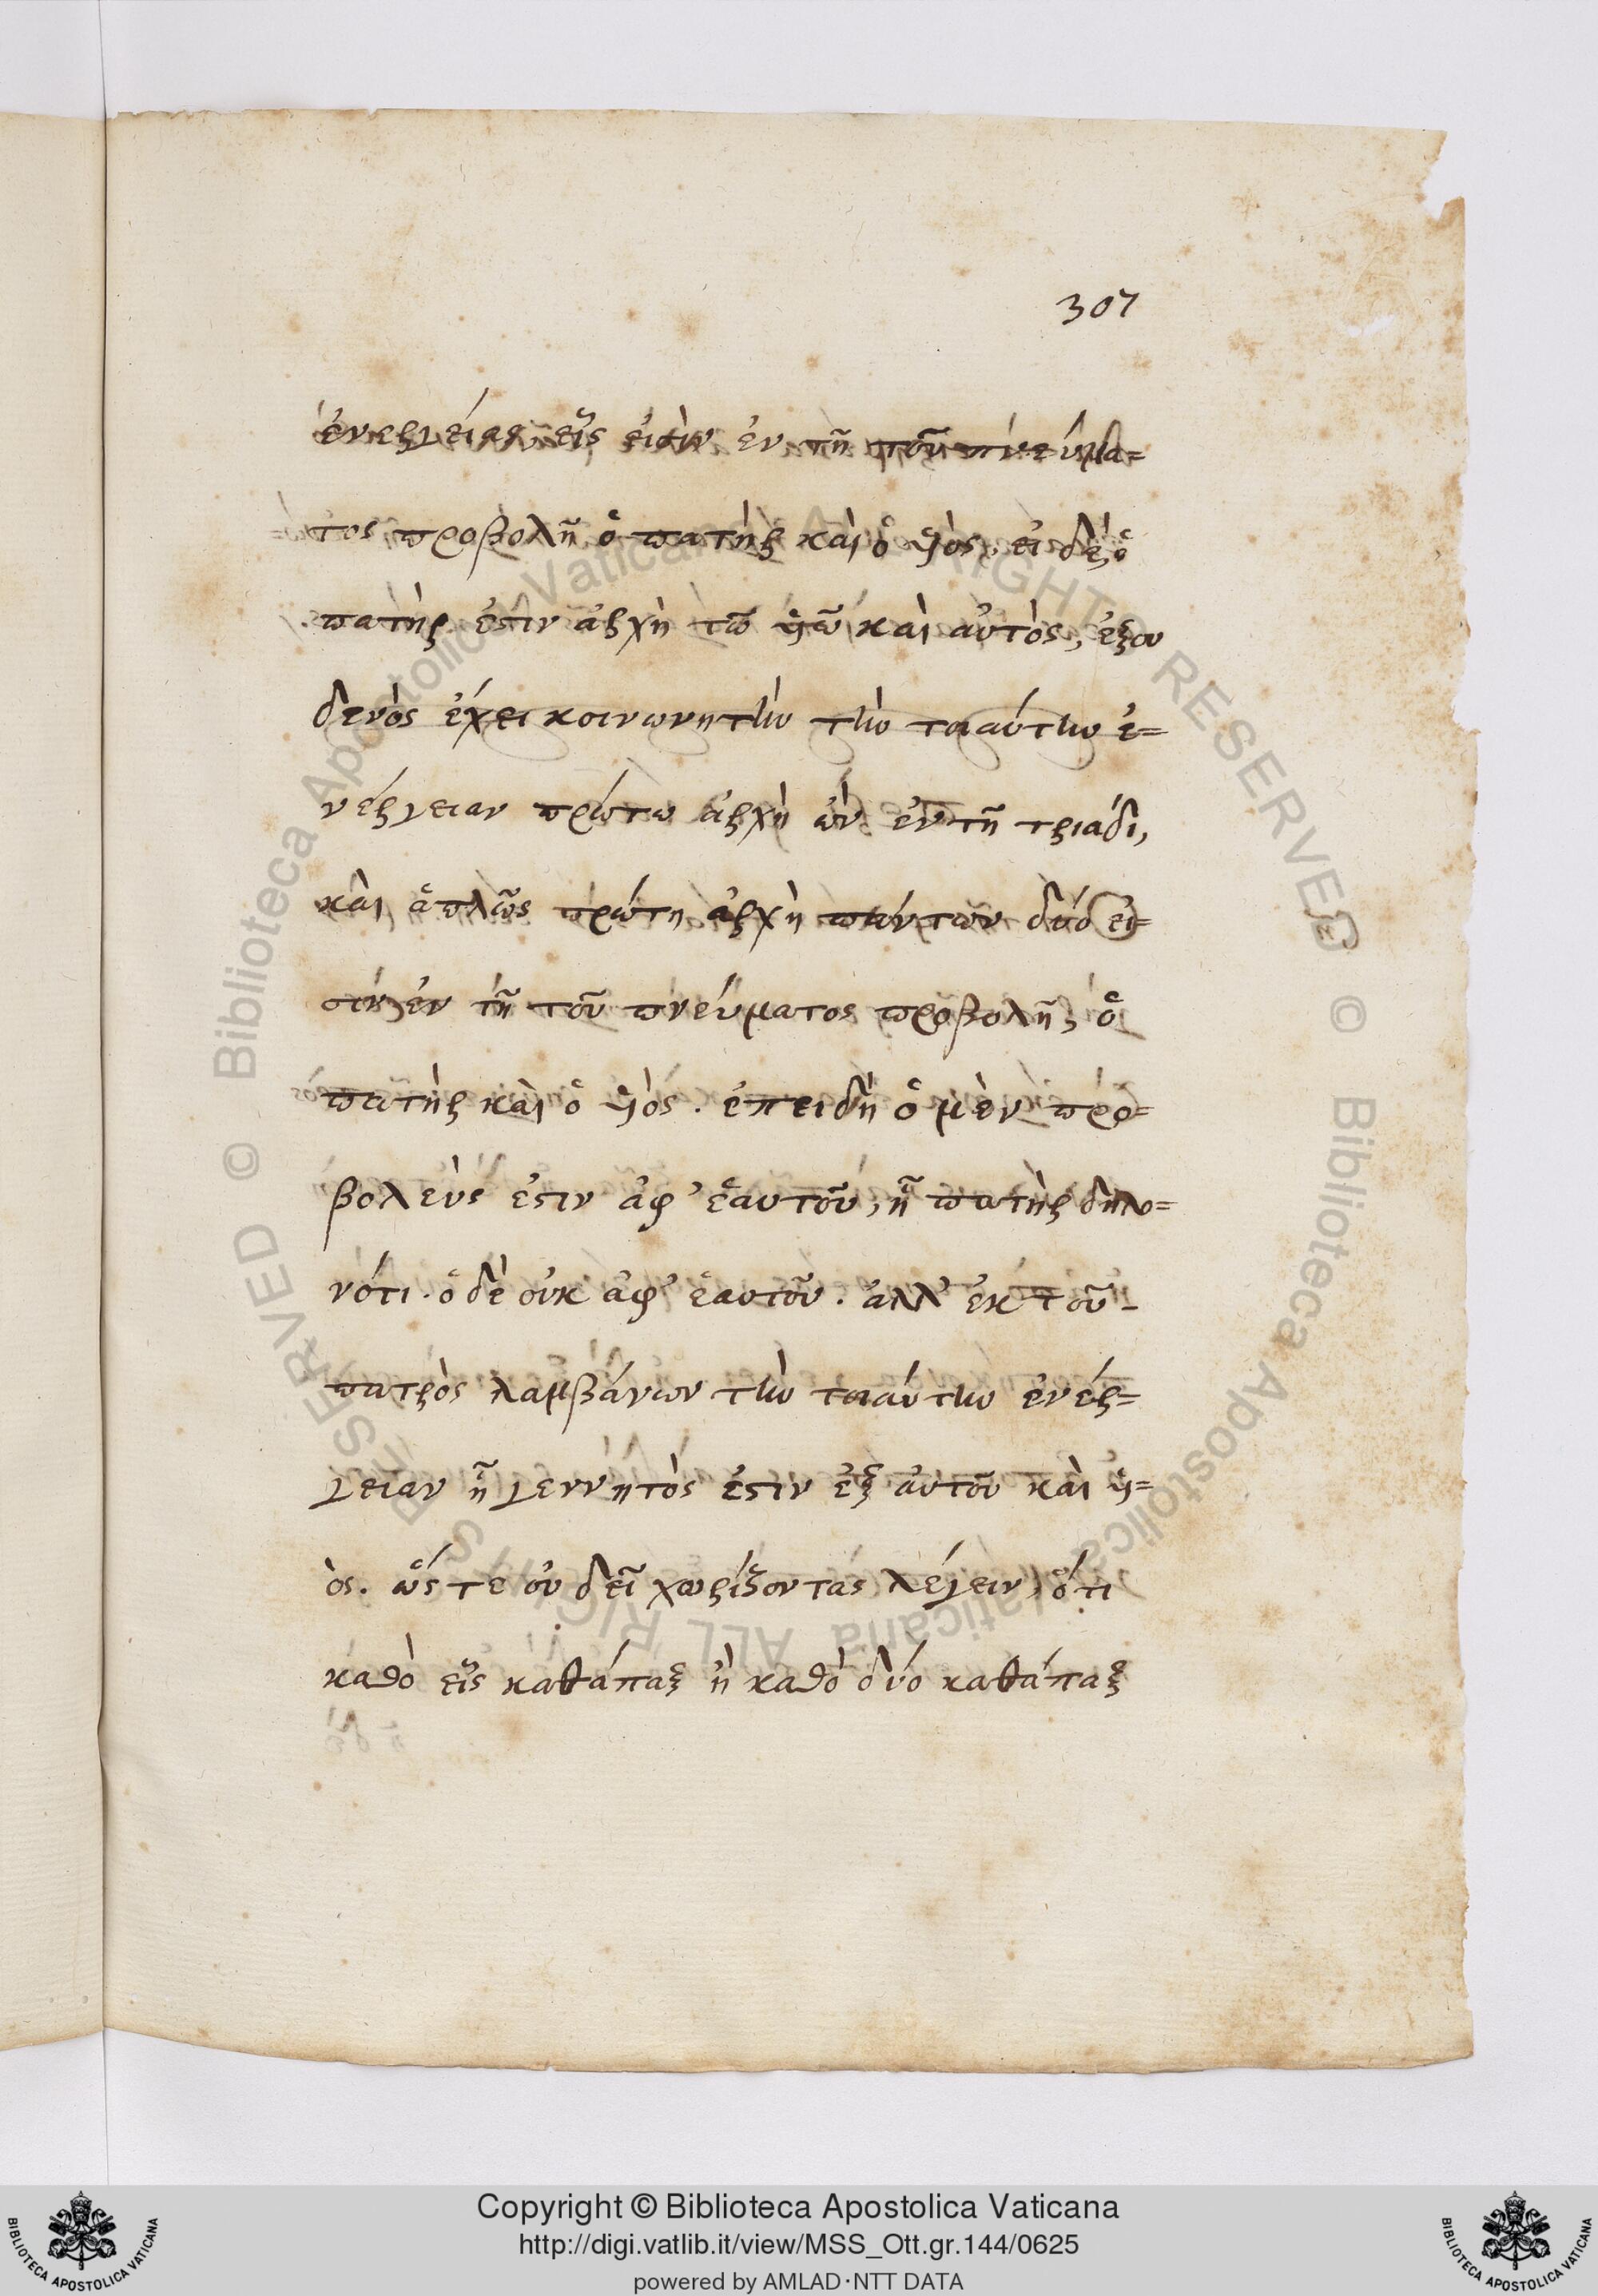 307
ἐνεργείας εἷς εἰσὶν ἐν τῇ τοῦ πνεύμα=
τος προβολῇ ὁ πατὴρ καὶ ὁ ὑιὸς, εἰ δὲ ὁ
πατὴρ ἐστιν ἀρχὴ τῶ ὑιῶ καὶ αὐτὸς, ἐξ ου
δενὸς ἔχει κοινωνητὴν τὴν τοιαύτην ἐ=
νέργειαν πρώτω ἀρχὴ ὢν ἐν τῇ τριάδι,
καὶ ἁπλῶς πρώτη ἀρχὴ πάντων δύο εἰ=
σιν ἐν τῇ τοῦ πνεύματος προβολῇ, ὁ
πατὴρ καὶ ὁ ὑιὸς. ἐπειδὴ ὁ μὲν προ=
βολεύς ἐστιν ἀφ’ ἑαυτοῦ, ᾗ πατὴρ δηλο=
νότι. ὁ δὲ οὐκ ἀφ’ ἑαυτοῦ. ἀλλ’ ἐκ τοῦ-
πατρὸς λαμβάνων τὴν τοιαύτην ἐνέρ=
γειαν ᾗ γεννητὸς ἐστιν ἐξ αὐτοῦ καὶ ὑι=
ὸς. ὥστε οὐ δεῖ χωρίζοντας λέγειν, ὅτι
καθὸ εἷς καθάπαξ ἢ καθὸ δύο καθάπαξ
Copyright © Biblioteca Apostolica Vaticana
http://digi.vatlib.it/view/MSS_Ott.gr.144/0625
powered by AMLAD·NTT DATA
BIBLIOTECA APOSTOLICA VATICANA
BIBLIOTECA APOSTOLICA VATICANA
© Biblioteca Apostolica Vaticana ALL RIGHTS RESERVED © Biblioteca Apostolica Vaticana ALL RIGHTS RESERVED